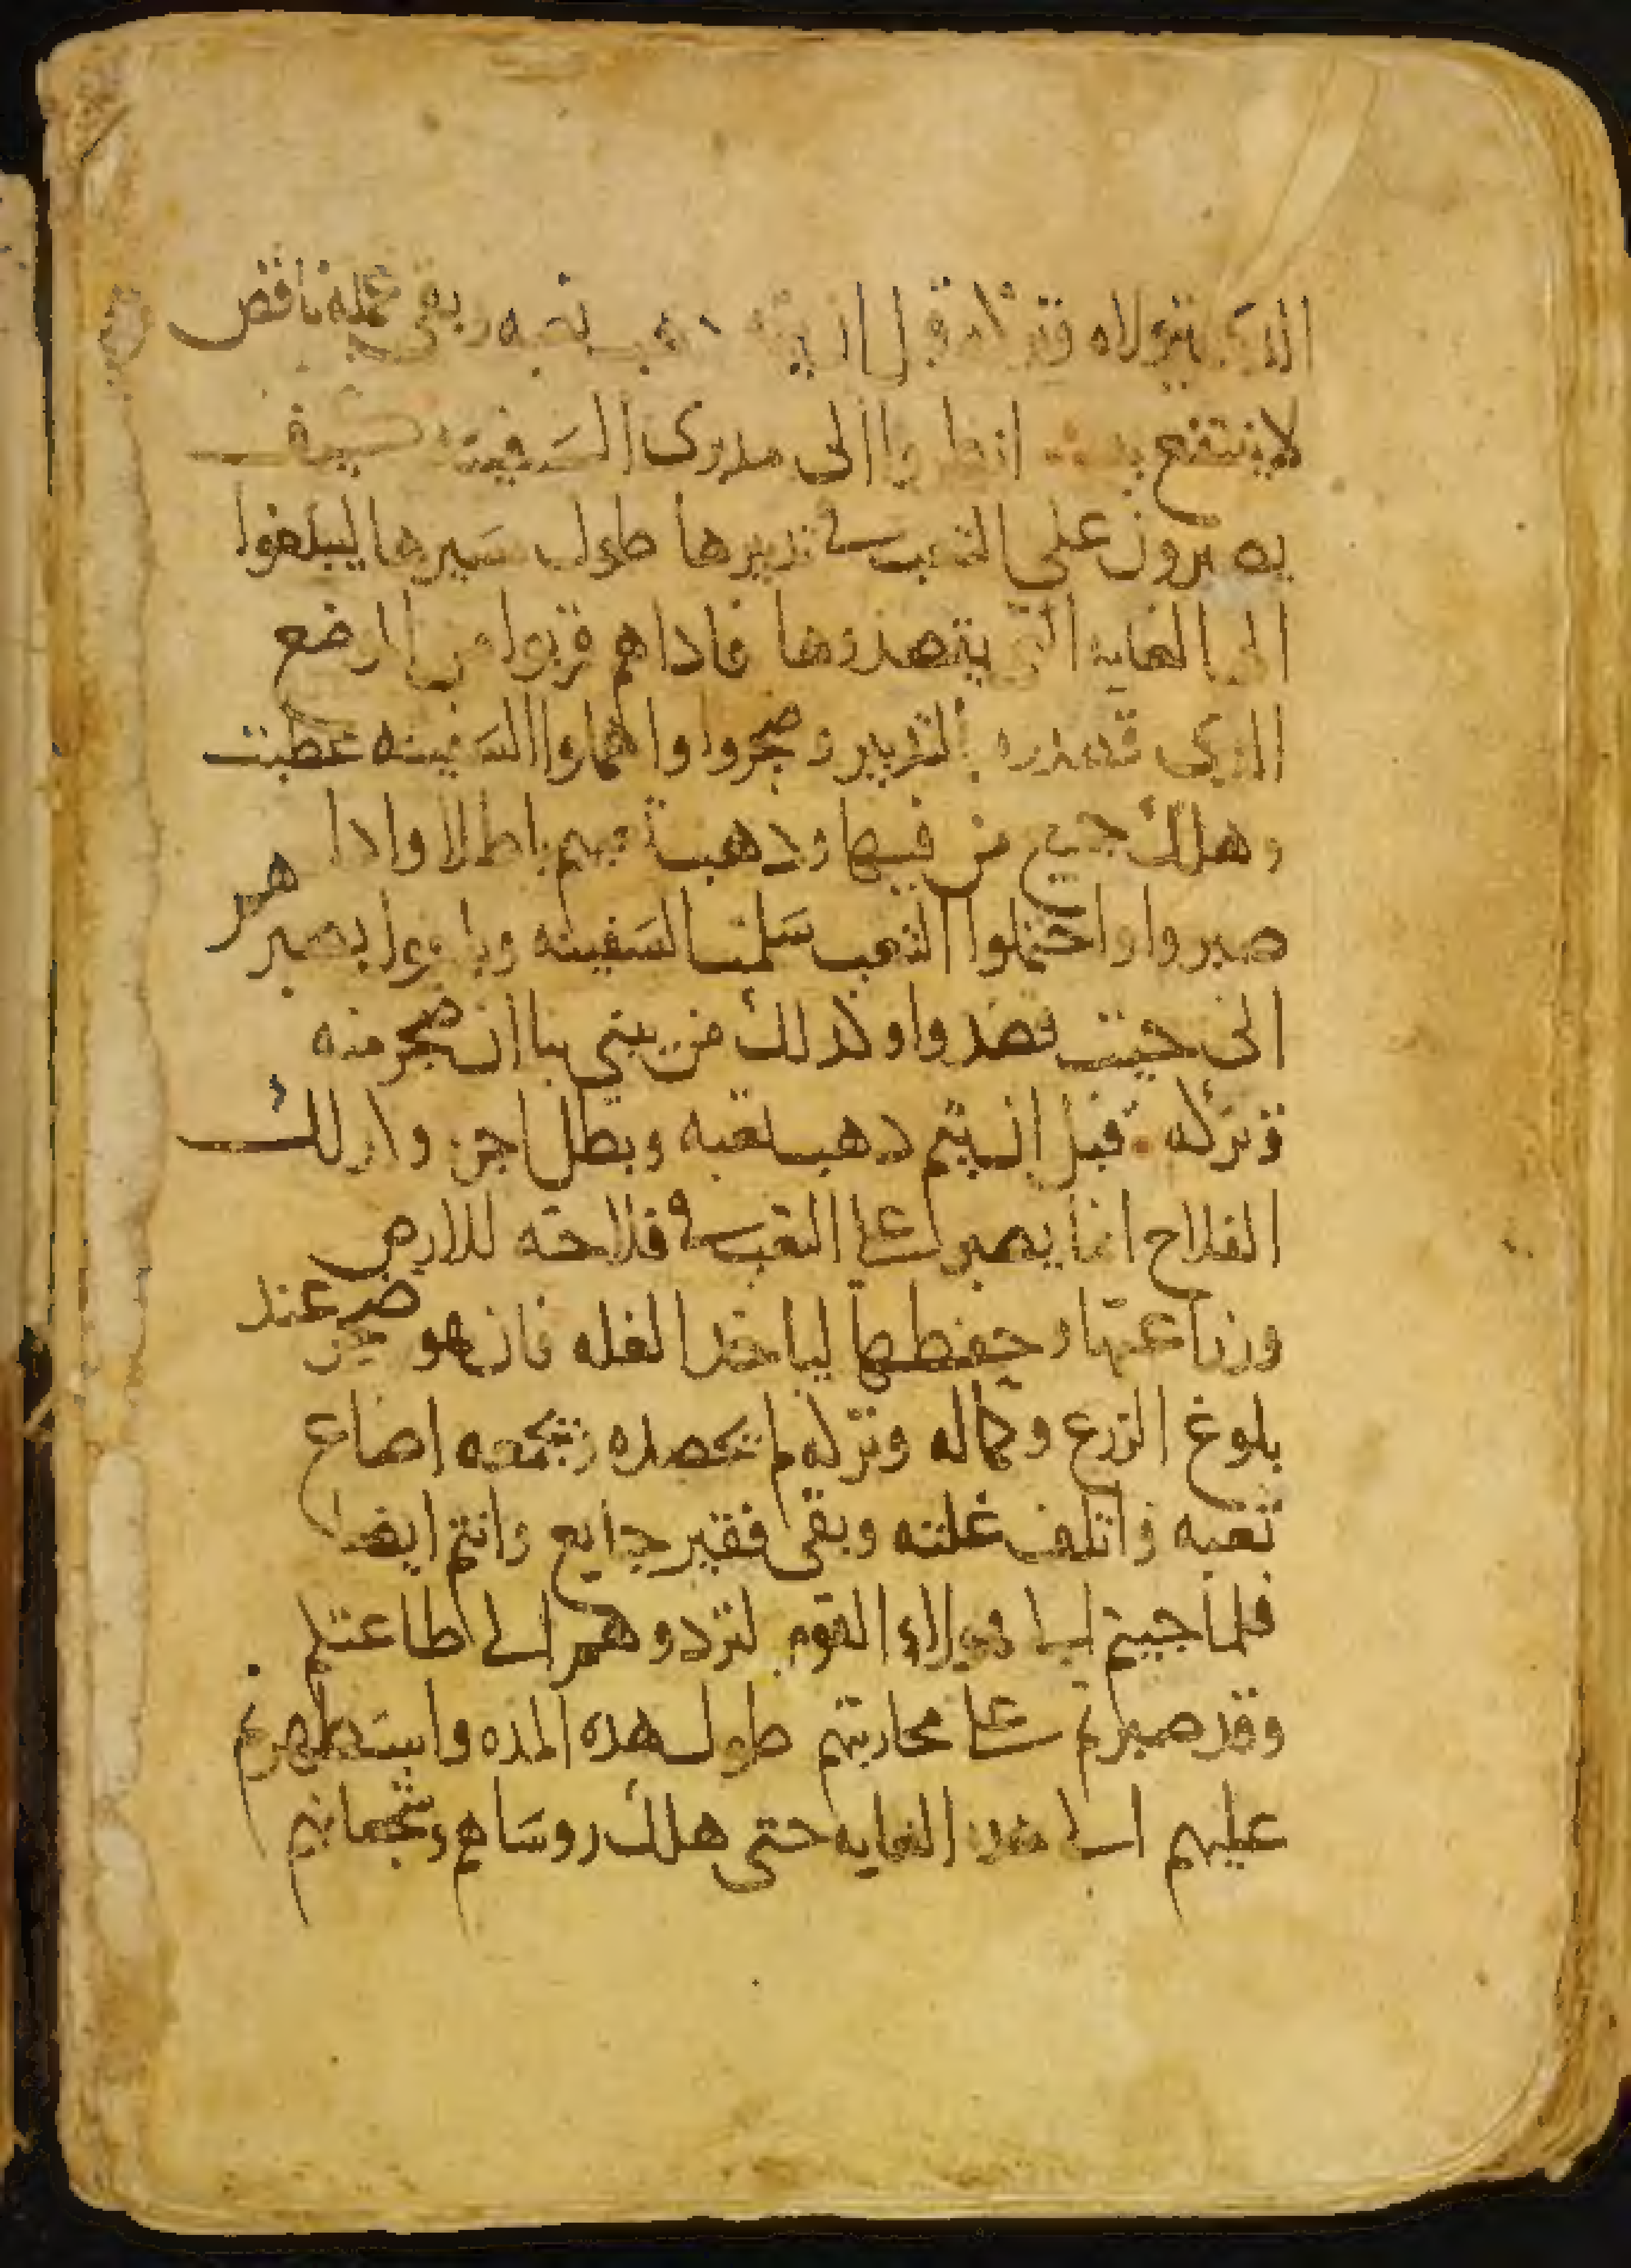 الذي يتولاه وتركه قبل ان يتم ذهب تعبه وبقى عمله ناقص
لا ينتفع به انظروا الى مدبرى السفينه كيف
يصبرون على التعب في تدبيرها طول سيرها ليبلغوا
الى الغايه التي يقصدوها فاذا هم قربوا من الموضع
الذي قصدوه بالتدبير وضجروا واهملوا السفينه عطبت
وهلك جميع من فيها وذهب تعبهم باطلا واذا هم
صبروا واحتملوا التعب سلمت السفينه وبلغوا بصبرهم
الى حيث قصدوا وكدلك من يبني بنا ان ضجر منه
وتركه قبل ان يتم دهب تعبه وبطل اجره وكدلك
الفلاح انما يصبر على التعب في فلاحته للارض
وزراعتها وحفظها لياخد الغله فان هو ضجر عند
بلوغ الزرع وكماله وتركه لم يحصده ويجمعه اضاع
تعبه واتلف غلته وبقى فقير جايع وانتم ايضا
فلما جيتم الى هولاء القوم لتردوهم الى طاعتكم
وقد صبرتم على محاربتهم طول هده المده واستظهرتم
عليهم الى هده الغايه حتى هلك روساهم وشجعانهم